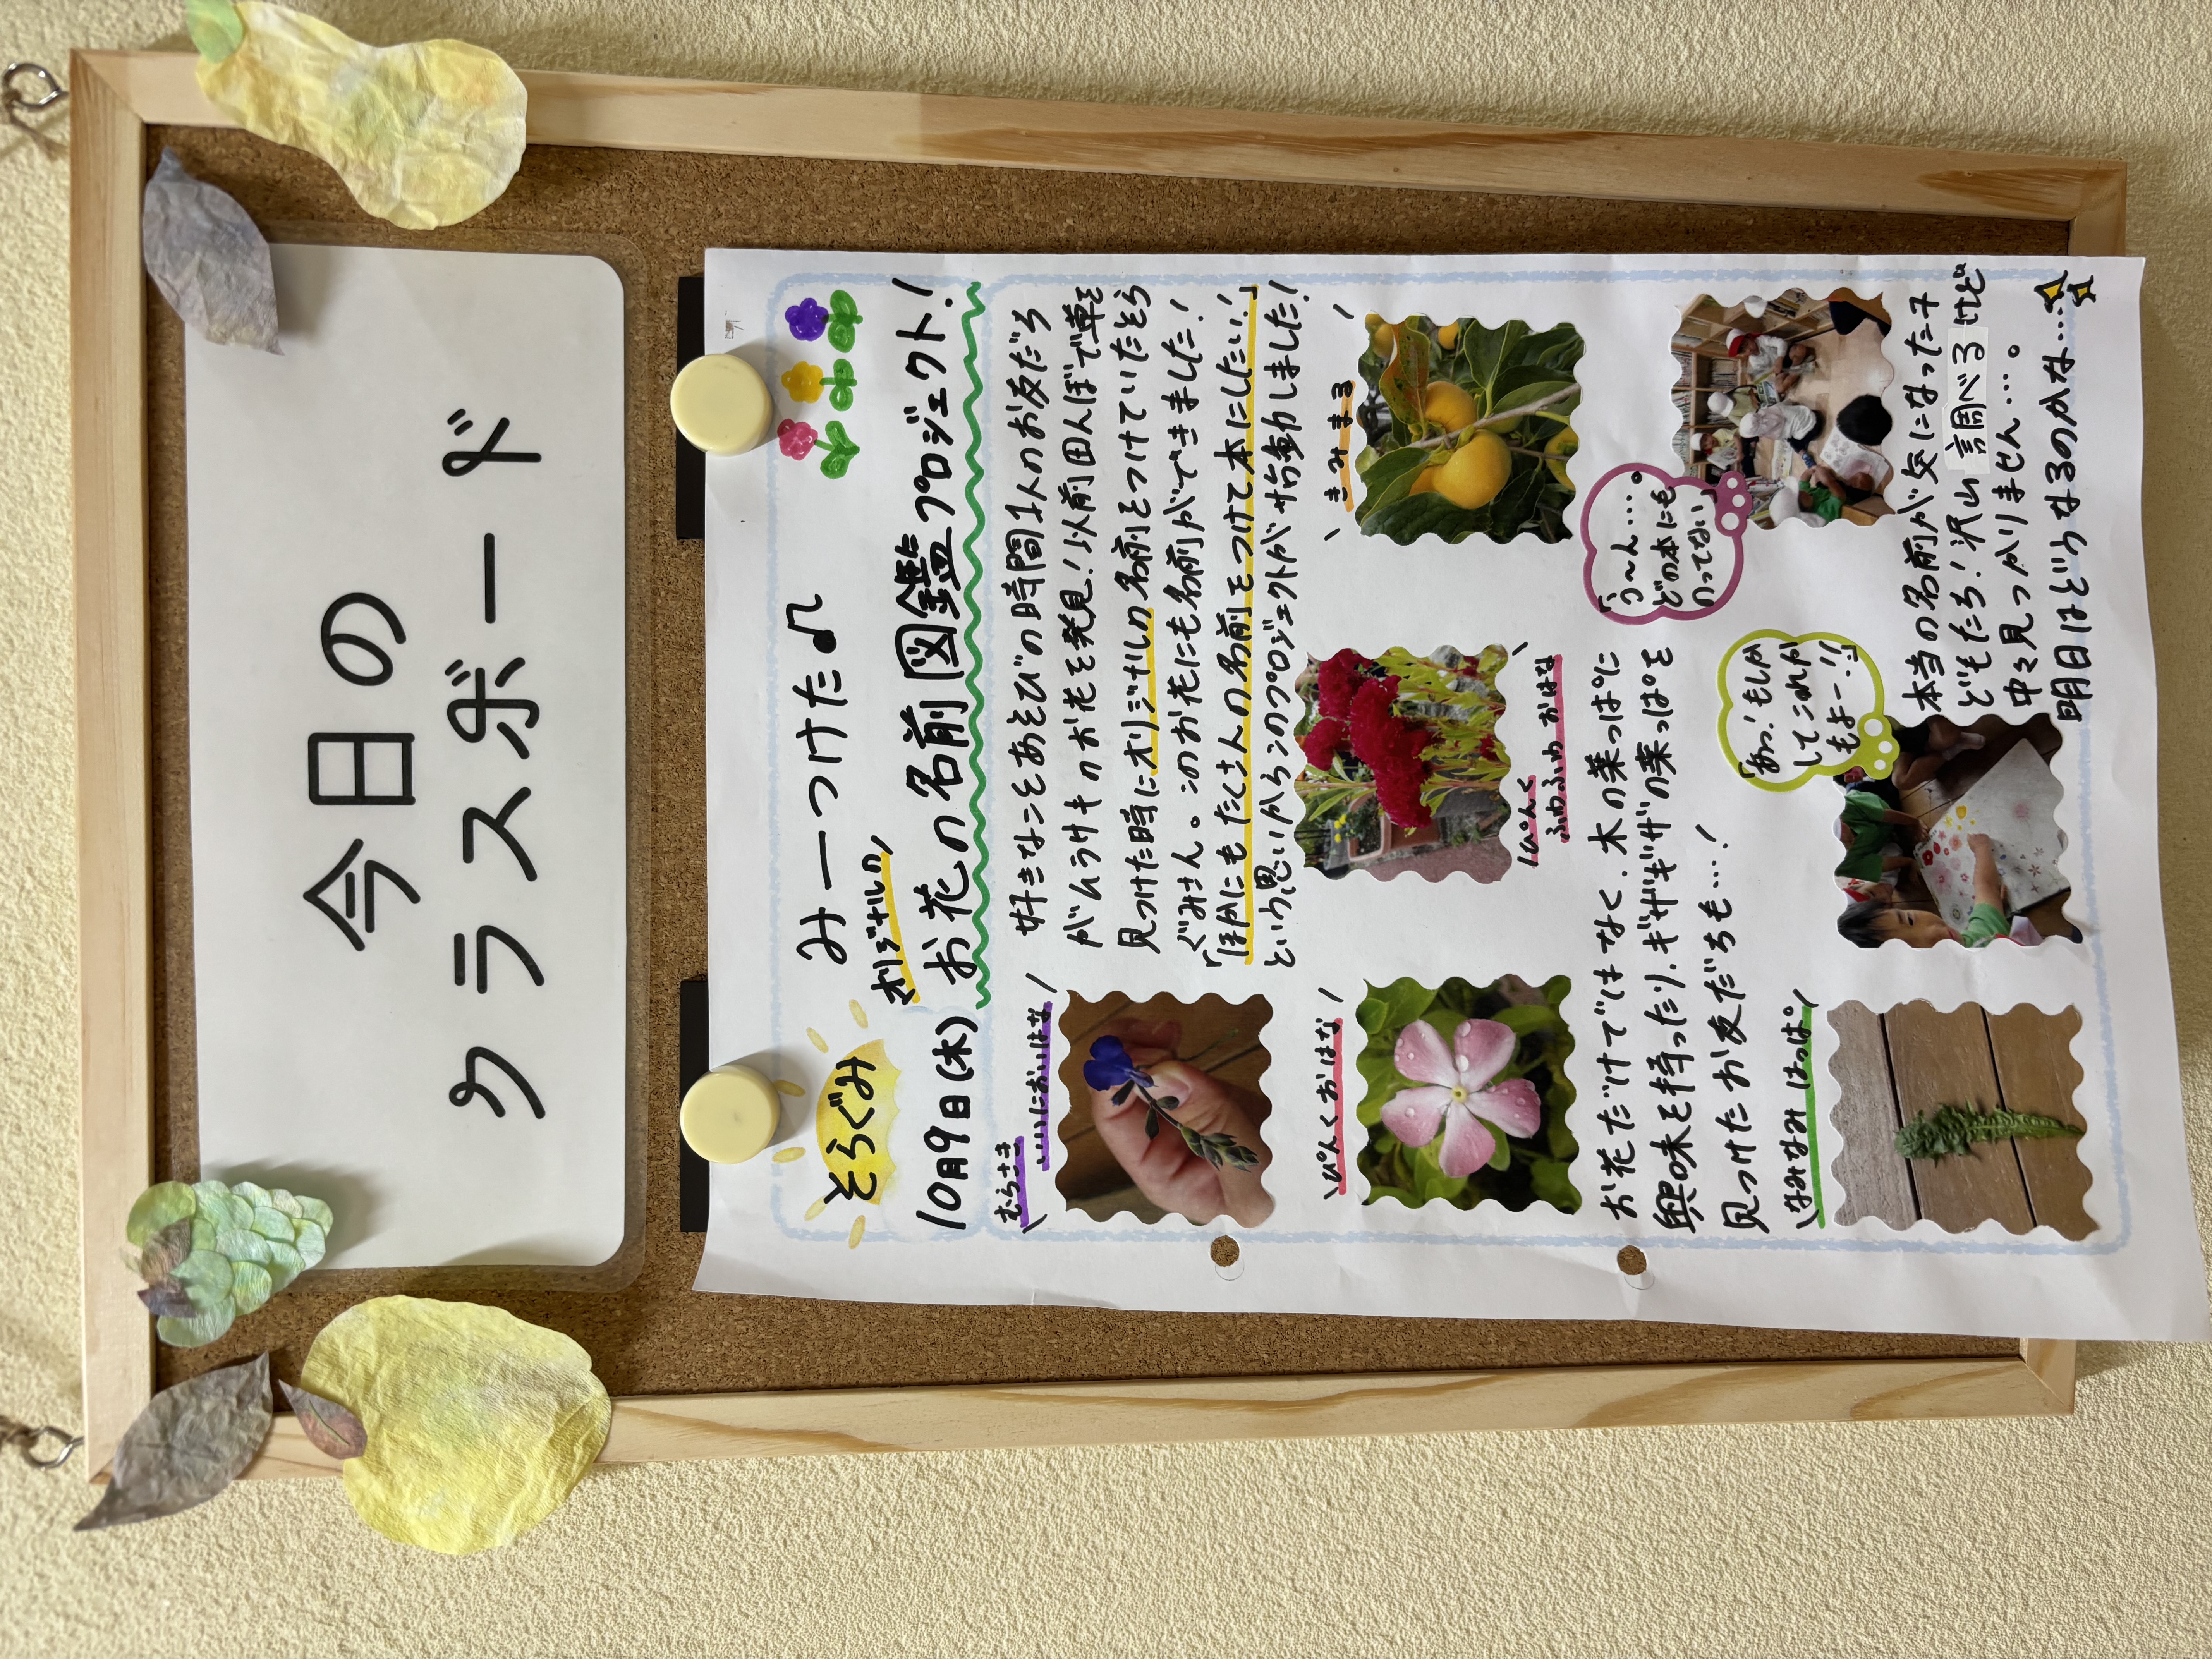 今日の
クラスボード
そらぐみ
10月9日(木)
みーつけた♪
オリジナルの
お花の名前図鑑プロジェクト!
むらさき
いいにおいはな
好きなことあそびの時間1人のお友だち
がムラサキのお花を発見!以前田んぼで草を
見つけた時にオリジナルの名前をつけていたそら
ぐみさん。このお花にも名前ができました!
「ほかにもたくさんの名前をつけて本にしたい!」
という思いからこのプロジェクトが始動しました!
ぴんくおはな
ぴんく
ふわふわ おはな
きみまる
お花だけではなく、木の葉っぱに
興味を持ったり、ギザギザの葉っぱを
見つけたお友だちも…!
なみなみはっぱ
「う~ん…。
どの本にも
のってない」
「あっ!もしか
してこれか
もよー!!」
本当の名前が気になった子
どもたち!沢山調べるけど
中々見つかりません…。
明日はどうなるのかな…